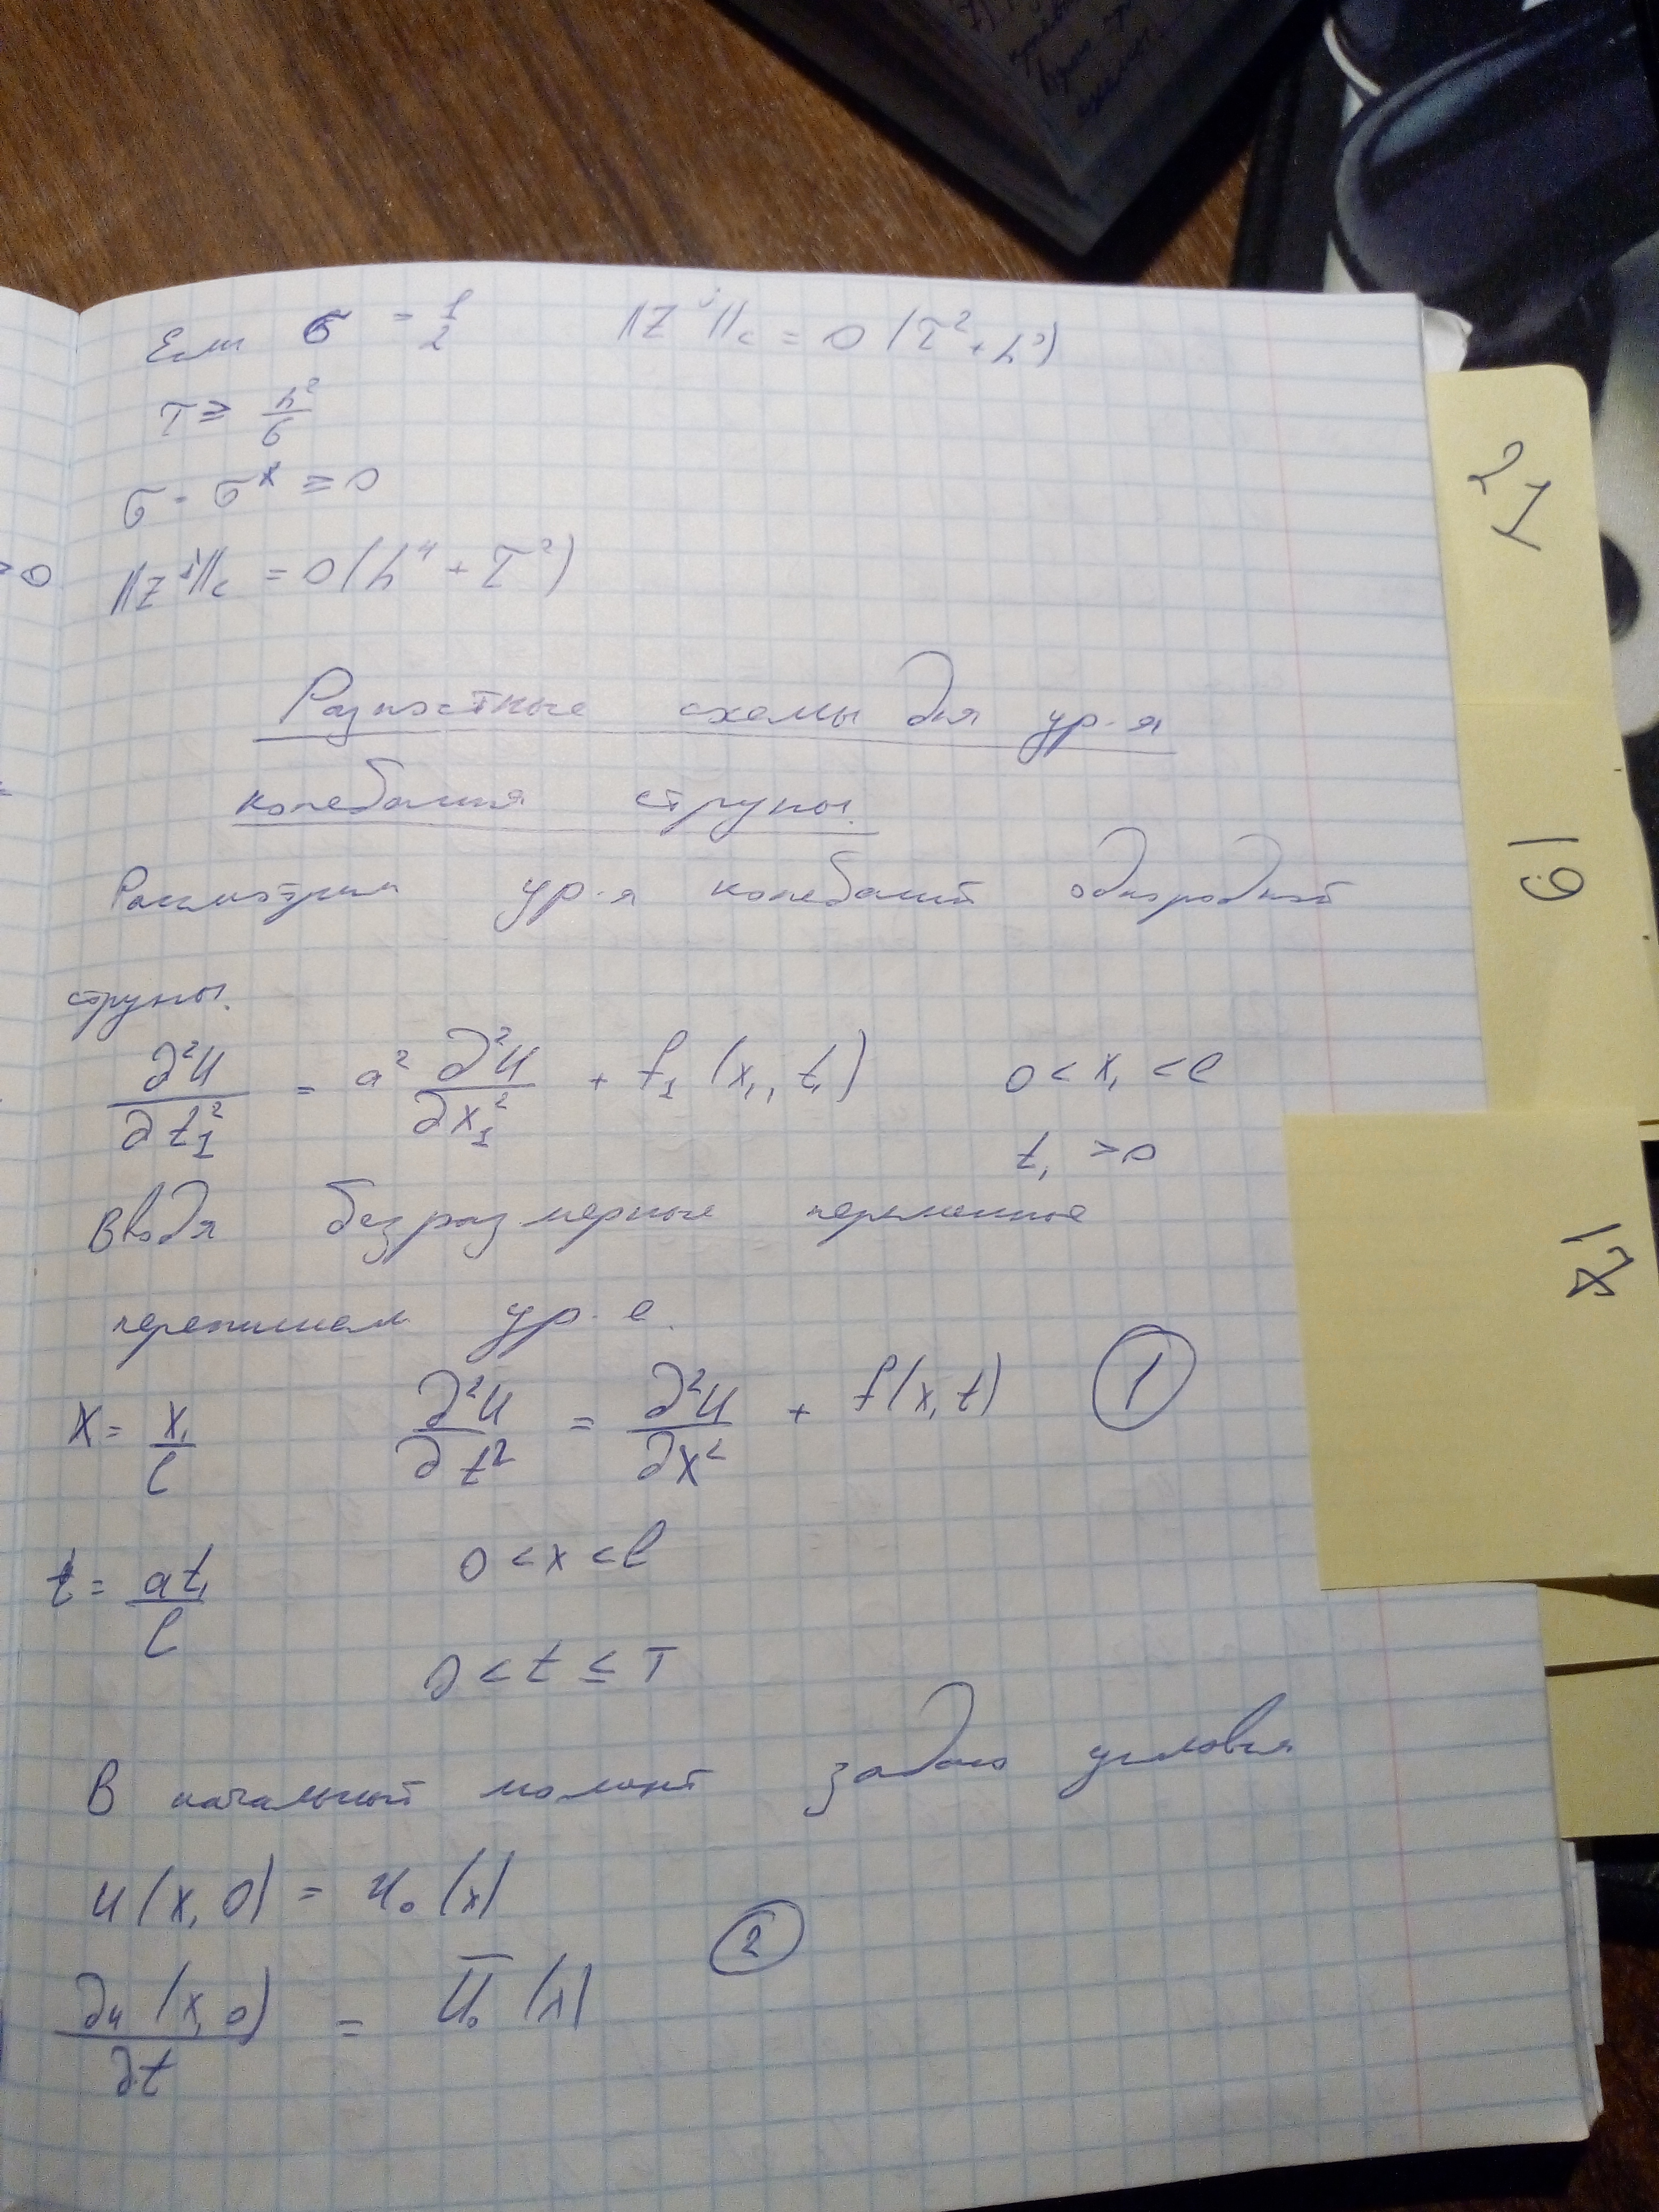 Если σ = 1/2 ||Z^j||_c = O(τ² + h²)
τ ≥ h²/6
σ = σ* ≥ 0
||Z^j||_c = O(h⁴ + τ²)
Разностные схемы для ур-я
колебания струны.
Рассмотрим ур-я колебаний однородной
струны.
∂²u/∂t₁² = a² ∂²u/∂x₁² + f₁(x₁, t₁) 0 < x₁ < l
t₁ > 0
Вводя безразмерные переменные
перепишем ур-е.
x = x₁/l ∂²u/∂t² = ∂²u/∂x² + f(x, t) 1
t = at₁/l 0 < x < l
0 < t ≤ T
В начальный момент задаю условия
u(x, 0) = u₀(x)
2
∂u(x, 0)/∂t = ū₀(x)
21
19
17